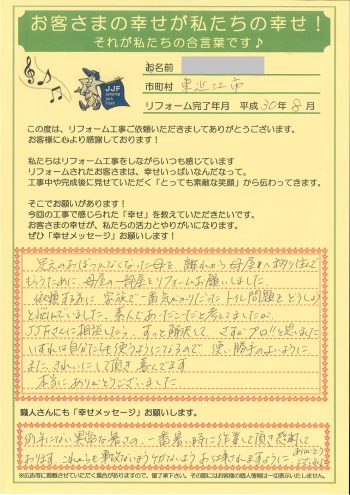 お客さまの幸せが私たちの幸せ!
それが私たちの合言葉です♪
JJF
お名前
市町村 東近江市
リフォーム完了年月 平成30年8月
この度は、リフォーム工事ご依頼いただきましてありがとうございます。
お客様に心より感謝しております!
私たちはリフォーム工事をしながらいつも感じています
リフォームされたお客さまは、幸せいっぱいなんだなって。
工事中や完成後に見せていただく「とっても素敵な笑顔」から伝わってきます。
そこでお願いがあります!
今回の工事で感じられた「幸せ」を教えていただきたいです。
お客さまの幸せが、私たちの活力とやりがいになります。
ぜひ「幸せメッセージ」お願いします!
足元のおぼつかなくなった母を、離れから母屋に移り住んで
もらうために、母屋の一部屋をリフォームお願いしました。
依頼するにも家族で一番気がかりだったトイレ問題をどうしよう
と悩んでいました。素人ではこんなことだと考えましたが
JJFさんに相談したら、すっと解決して、さすがプロ!!と思いました
いずれは自分たちも使うようになるので、使い勝手のよいように
また、きれいにして頂き喜んでます
本当にありがとうございました
職人さんにも「幸せメッセージ」お願いします。
例年にない異常な暑さの、一番暑い時に作業して頂き感謝して
おります。これからも事故のないようケガのないようお仕事されますように
ありがとう
ございました
※広告等に掲載させていただく場合がありますので、御了承下さい。その際にはお客様の個人情報は一切表示いたしません。